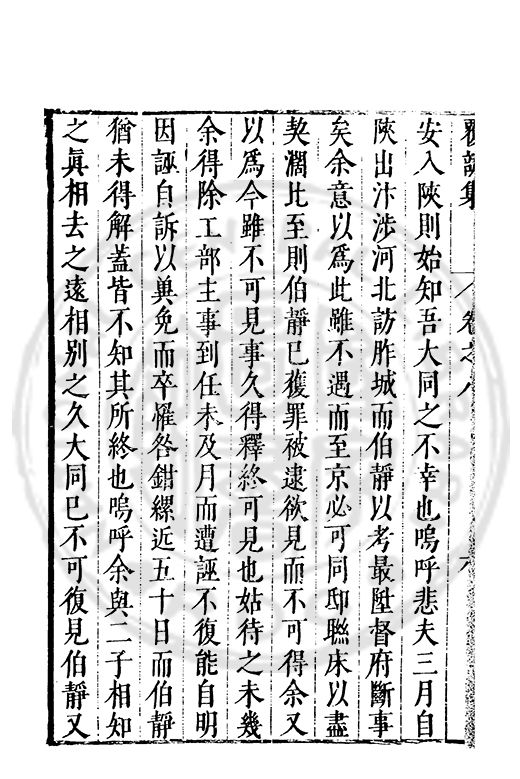 覆瓿集 卷之八 六
安入陝則始知吾大同之不幸也嗚呼悲夫三月自
陝出汴涉河北訪胙城而伯靜以考最陞督府斷事
矣余意以爲此雖不遇而至京必可同邸聯床以盡
契濶比至則伯靜巳獲罪被逮欲見而不可得余又
以爲今雖不可見事久得釋終可見也姑待之未幾
余得除工部主事到任未及月而遭誣不復能自明
因誣自訴以兾免而卒罹咎鉗縲近五十日而伯靜
猶未得解蓋皆不知其所終也嗚呼余與二子相知
之眞相去之遠相別之久大同巳不可復見伯靜又